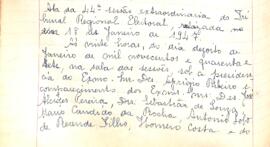 Ata da 44ª sessão extraordinaria do Tri-
bunal Regional Eleitoral, realizada no
dia 18 de Janeiro de 1947
Às vinte horas, do dia dezoito de
Janeiro de mil novecentos e quarenta e
sete, na sala das sessões, sob a presiden-
cia do Exmo. Snr. Des. Ribeiro e
comparecimento dos Exmos. Snrs. Des.
Pereira, Drs. Sebastião de Souza,
Mario Candido da Rocha, Antonio
de Rezende Filho, Homero Costa e do